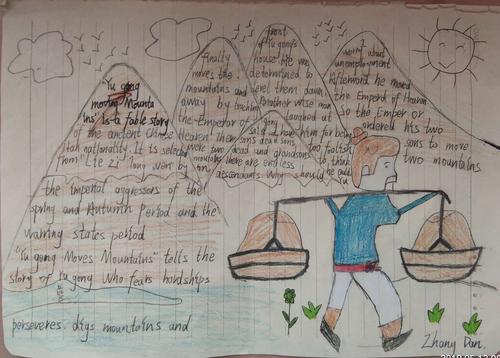 Yu gong
moving Mounta
ins' Is a fable story
of the ancient chinese
Han nationality. It is selected
from "Lie zi" Tang wen by
the Imperial aggressors of the
spring and Autumn Period and the
warring states period
"Yu gong Moves Mountains" tells the
story of Yu gong who fears hardships
perseveres. digs mountains and
Finally
moves the
mountains and
away by
the Emperor of
Heaven
were two dead and grandsons
mountains there are endless
descendants Why should
front
of Yu gong's
house. He was
determined to
level them down
Another wise man
laughed at
him for being
too foolish
to think
worry about
unemployment
Afterword he moved
the Emperor of Heaven
So the Emperor
ordered his two
sons to move
two mountains
Zhang Dan.